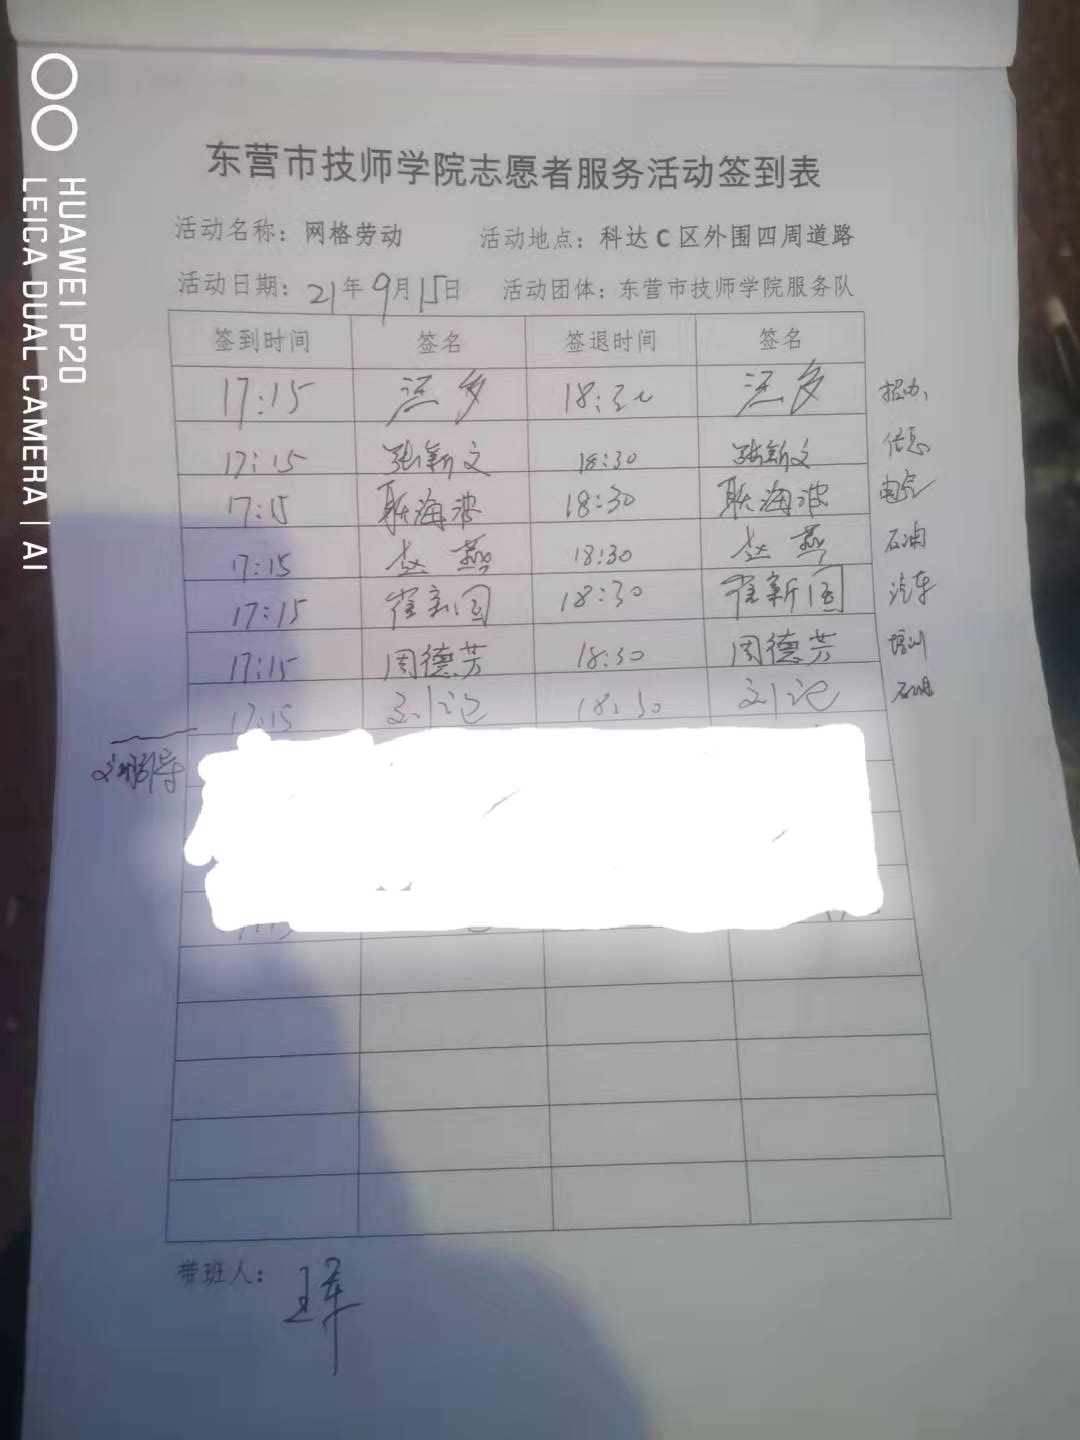 东营市技师学院志愿者服务活动签到表
活动名称：网格劳动 活动地点：科达C区外围四周道路
活动日期：21年9月15日 活动团体：东营市技师学院服务队
签到时间 签名 签退时间 签名
17:15 18:30 招办、
17:15 张新文 18:30 张新文 信息
17:15 耿海波 18:30 耿海波 电气
17:15 赵燕 18:30 赵燕 石油
17:15 崔新国 18:30 崔新国 汽车
17:15 周德芳 18:30 周德芳 培训
17:15 18:30
文明引导
带班人：王军
HUAWEI P20
LEICA DUAL CAMERA | AI